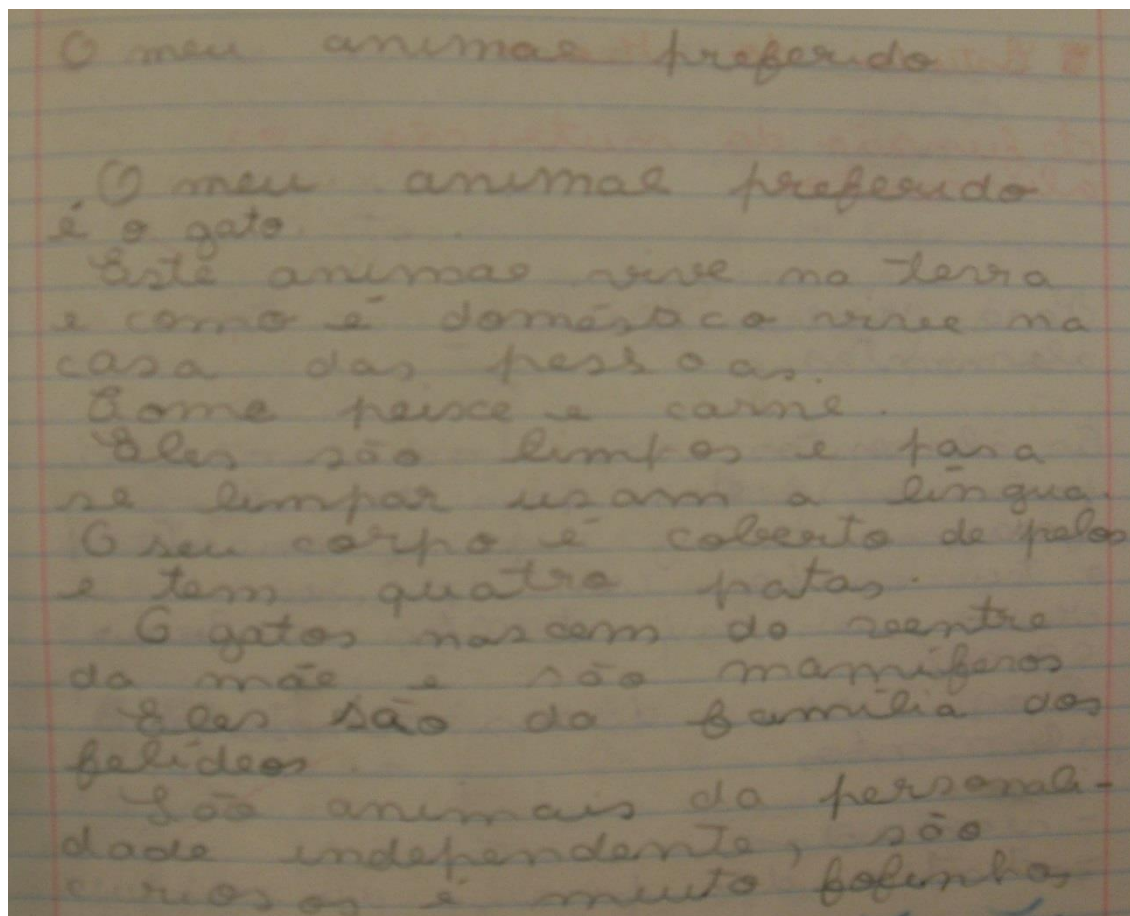 O meu animal preferido
O meu animal preferido
é o gato.
Este animal vive na terra
e como é doméstico vive na
casa das pessoas.
Come peixe e carne.
Eles são limpos e para
se limpar usam a língua.
O seu corpo é coberto de pelos
e tem quatro patas.
O gatos nascem do ventre
da mãe e são mamíferos
Eles são da família dos
felídeos.
São animais da personali-
dade independente, são
curiosos e muito fofinhos